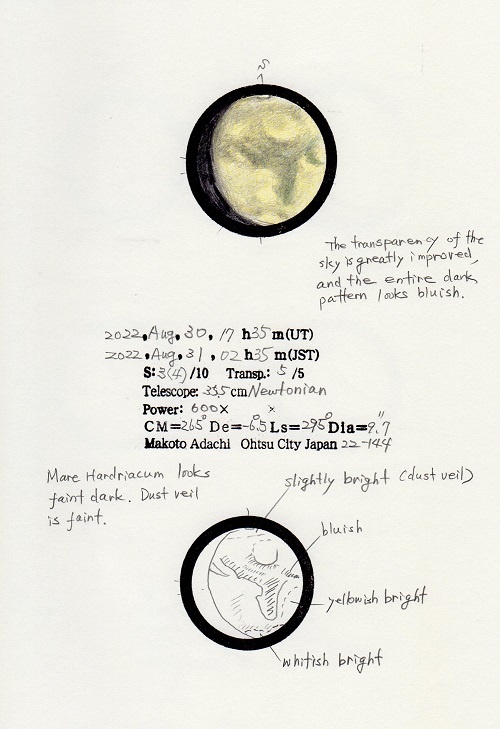 S
The transparency of the
sky is greatly improved,
and the entire dark
pattern looks bluish.
2022, Aug, 30, 17 h35 m(UT)
2022, Aug, 31, 02 h35 m(JST)
S: 3(4) /10 Transp.: 5 /5
Telescope: 33.5 cm Newtonian
Power: 600× ×
CM=265° De=-6.5 Ls=295° Dia=9."7
Makoto Adachi Ohtsu City Japan 22-144
Mare Hardriacum looks
faint dark. Dust veil
is faint.
slightly bright (dust veil)
bluish
yellowish bright
whitish bright